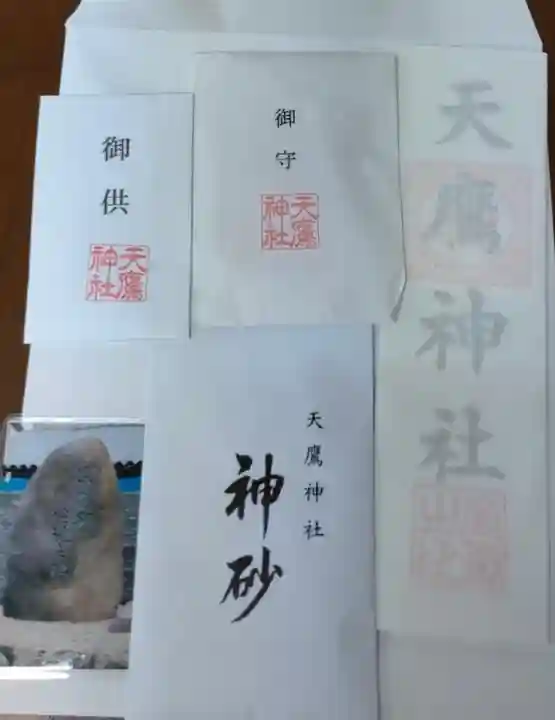 御供
天鷹
神社
御守
天鷹
神社
天鷹神社
天鷹神社
神砂